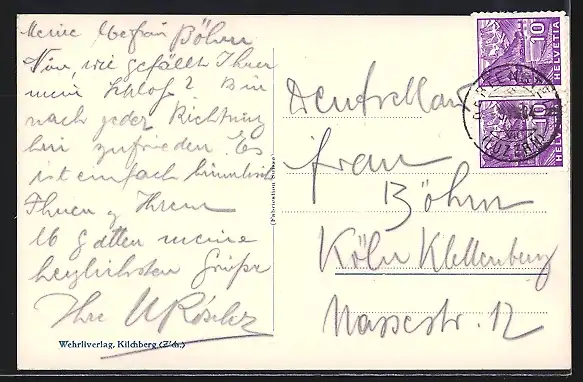 Meine Frau Böhm
Nun, wie gefällt Ihnen
mein Schloß? Bin
nach jeder Richtung
hin zufrieden. Es
ist einfach himmlisch
Ihnen u Ihrem
Gatten meine
herzlichsten Grüße
Ihre
Wehrliverlag, Kilchberg (Z'ch.)
(Fabrication Suisse)
10
HELVETIA
10
HELVETIA
(LUZERN)
Deutschland
Frau
Böhm
Köln Klettenberg
Nassestr. 12